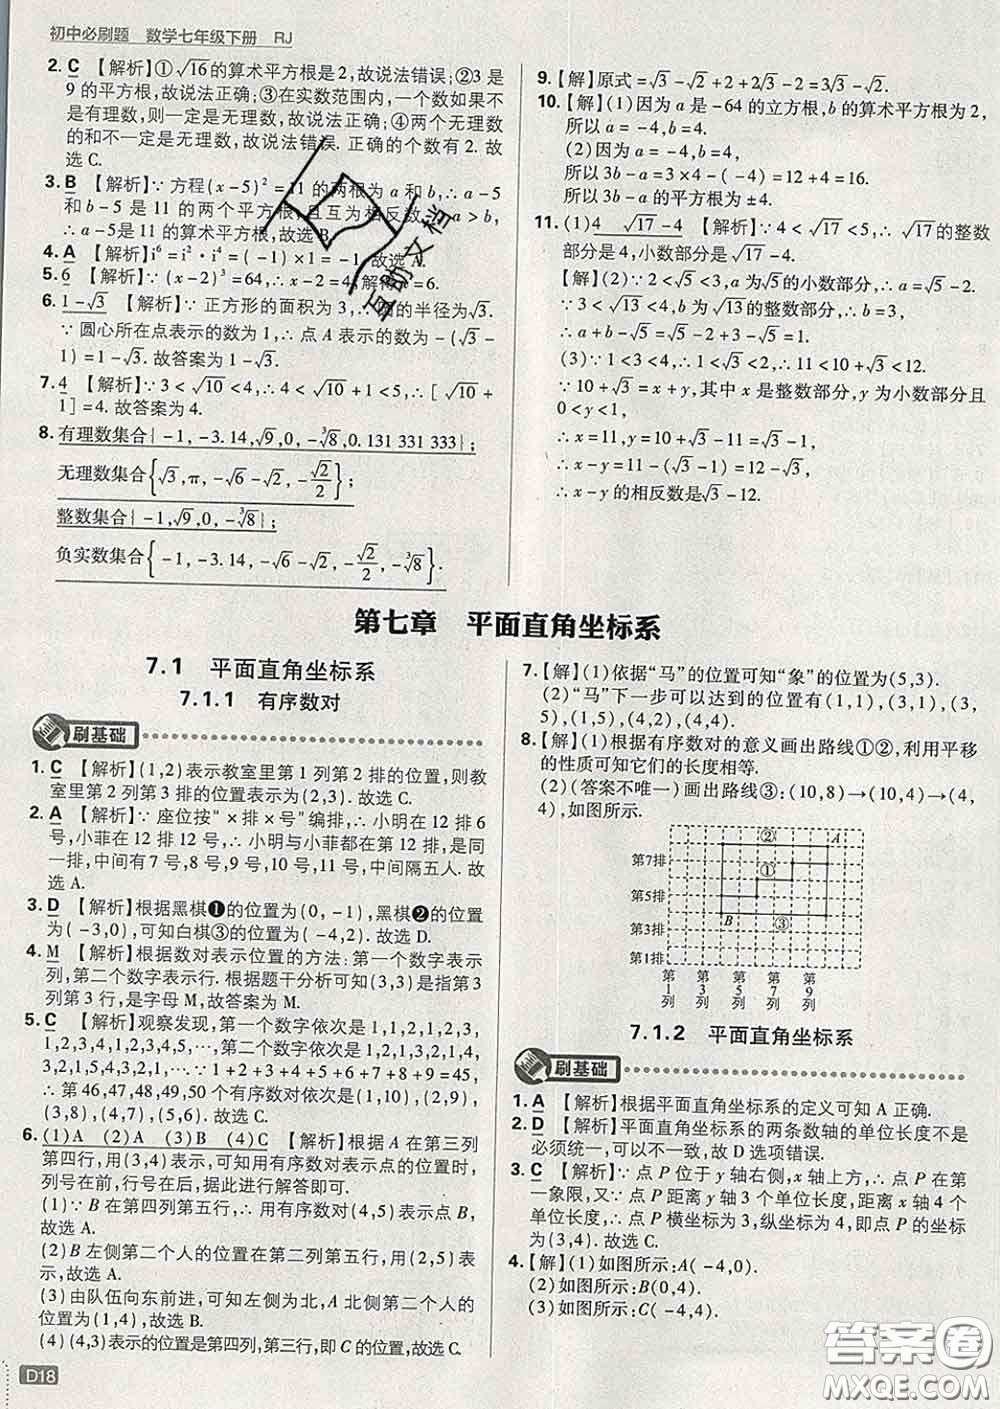 初中必刷题 数学七年级下册 RJ
2. C 【解析】①√16的算术平方根是2,故说法错误;②3是
9的平方根,故说法正确;③在实数范围内,一个数如果不
是有理数,则一定是无理数,故说法正确;④两个无理数
的和不一定是无理数,故说法错误. 正确的个数有2. 故
选C.
3. B 【解析】∵ 方程(x-5)²=11的两根为a和b,∴ a-5
和b-5是11的两个平方根,且互为相反数,∵ a>b,
∴ a-5是11的算术平方根,故选B.
4. A 【解析】i⁶=i²·i⁴=(-1)×1=-1.故选A.
5. 6 【解析】∵ (x-2)³=64,∴ x-2=4,解得x=6.
6. 1-√3 【解析】∵ 正方形的面积为3,∴ 圆的半径为√3.
∵ 圆心所在点表示的数为1,∴ 点A表示的数为-(√3
-1)=1-√3.故答案为1-√3.
7. 4 【解析】∵ 3<√10<4,∴ 4<√10+1<5,∴ [√10
+1]=4.故答案为4.
8. 有理数集合{-1,-3.14,√9,0,-∛8,0.131 331 333};
无理数集合{√3,π,-√6-√2,-√2/2};
整数集合{-1,√9,0,-∛8};
负实数集合{-1,-3.14,-√6-√2,-√2/2,-∛8}.
9. 【解】原式=√3-√2+2+2√3-2=3√3-√2.
10. 【解】(1)因为a是-64的立方根,b的算术平方根为2,
所以a=-4,b=4.
(2)因为a=-4,b=4,
所以3b-a=3×4-(-4)=12+4=16,
所以3b-a的平方根为±4.
11. (1)4 √17-4 【解析】∵ 4<√17<5,∴ √17的整数
部分是4,小数部分是√17-4.
【解】(2)∵ 2<√5<3,a为√5的小数部分,∴ a=√5-2.
∵ 3<√13<4,b为√13的整数部分,∴ b=3,
∴ a+b-√5=√5-2+3-√5=1.
(3)∵ 1<√3<4,∴ 1<√3<2,∴ 11<10+√3<12.
∵ 10+√3=x+y,其中x是整数部分,y为小数部分且
0<y<1,
∴ x=11,y=10+√3-11=√3-1,
∴ x-y=11-(√3-1)=12-√3,
∴ x-y的相反数是√3-12.
第七章 平面直角坐标系
7.1 平面直角坐标系
7.1.1 有序数对
刷基础
1. C 【解析】(1,2)表示教室里第1列第2排的位置,则教
室里第2列第3排的位置表示为(2,3).故选C.
2. A 【解析】∵ 座位按“×排×号”编排,∴ 小明在12排6
号,小菲在12排12号,∴ 小明与小菲都在第12排,是同
一排,中间有7号,8号,9号,10号,11号,中间隔五人.故
选A.
3. D 【解析】根据黑棋❶的位置为(0,-1),黑棋❷的位置
为(-3,0),可知白棋③的位置为(-4,2).故选D.
4. M 【解析】根据数对表示位置的方法:第一个数字表示
列,第二个数字表示行.根据题干分析可知(3,3)是指第3
列第3行,是字母M,故答案为M.
5. C 【解析】观察发现,第一个数字依次是1,1,2,1,2,3,
1,2,3,4,1,2,3,4,5,…,第二个数字依次是1,2,1,3,2,
1,4,3,2,1,5,4,3,2,1,…,∵ 1+2+3+4+5+6+7+8+9=45,
∴ 第46,47,48,49,50个有序数对依次是(1,10),(2,9),
(3,8),(4,7),(5,6).故选C.
6. (1)A (2)A (3)B (4)C 【解析】根据A在第三列
第四行,用(3,4)表示,可知用有序数对表示点的位置时,
列号在前,行号在后,据此进行解答即可.
(1)∵ B在第四列第五行,∴ 用有序数对(4,5)表示点B,
故选A.
(2)B左侧第二个人的位置在第二列第五行,用(2,5)表
示,故选A.
(3)由队伍向东前进,可知左侧为北,A北侧第二个人的
位置为(1,4),故选B.
(4)(4,3)表示的位置是第四列,第三行,即C的位置,故选C.
7. 【解】(1)依据“马”的位置可知“象”的位置为(5,3).
(2)“马”下一步可以到达的位置有(1,1),(3,1),(4,
5),(1,5),(4,2),(4,4).
8. 【解】(1)根据有序数对的意义画出路线①②,利用平移
的性质可知它们的长度相等.
(2)(答案不唯一)画出路线③:(10,8)→(10,4)→(4,
4),如图所示.
② A
第7排 ①
第5排
第3排 B ③
第1排
第1列 第3列 第5列 第7列 第9列
7.1.2 平面直角坐标系
刷基础
1. A 【解析】根据平面直角坐标系的定义可知A正确.
2. D 【解析】平面直角坐标系的两条数轴的单位长度不是
必须统一,可以不一致,故D选项错误.
3. C 【解析】∵ 点P位于y轴右侧,x轴上方,∴ 点P在第
一象限,又∵ 点P距离y轴3个单位长度,距离x轴4个
单位长度,∴ 点P横坐标为3,纵坐标为4,即点P的坐标
为(3,4).故选C.
4. 【解】(1)如图所示:A(-4,0).
(2)如图所示:B(0,4).
(3)如图所示:C(-4,4).
D18
答案圈
MXQE.COM